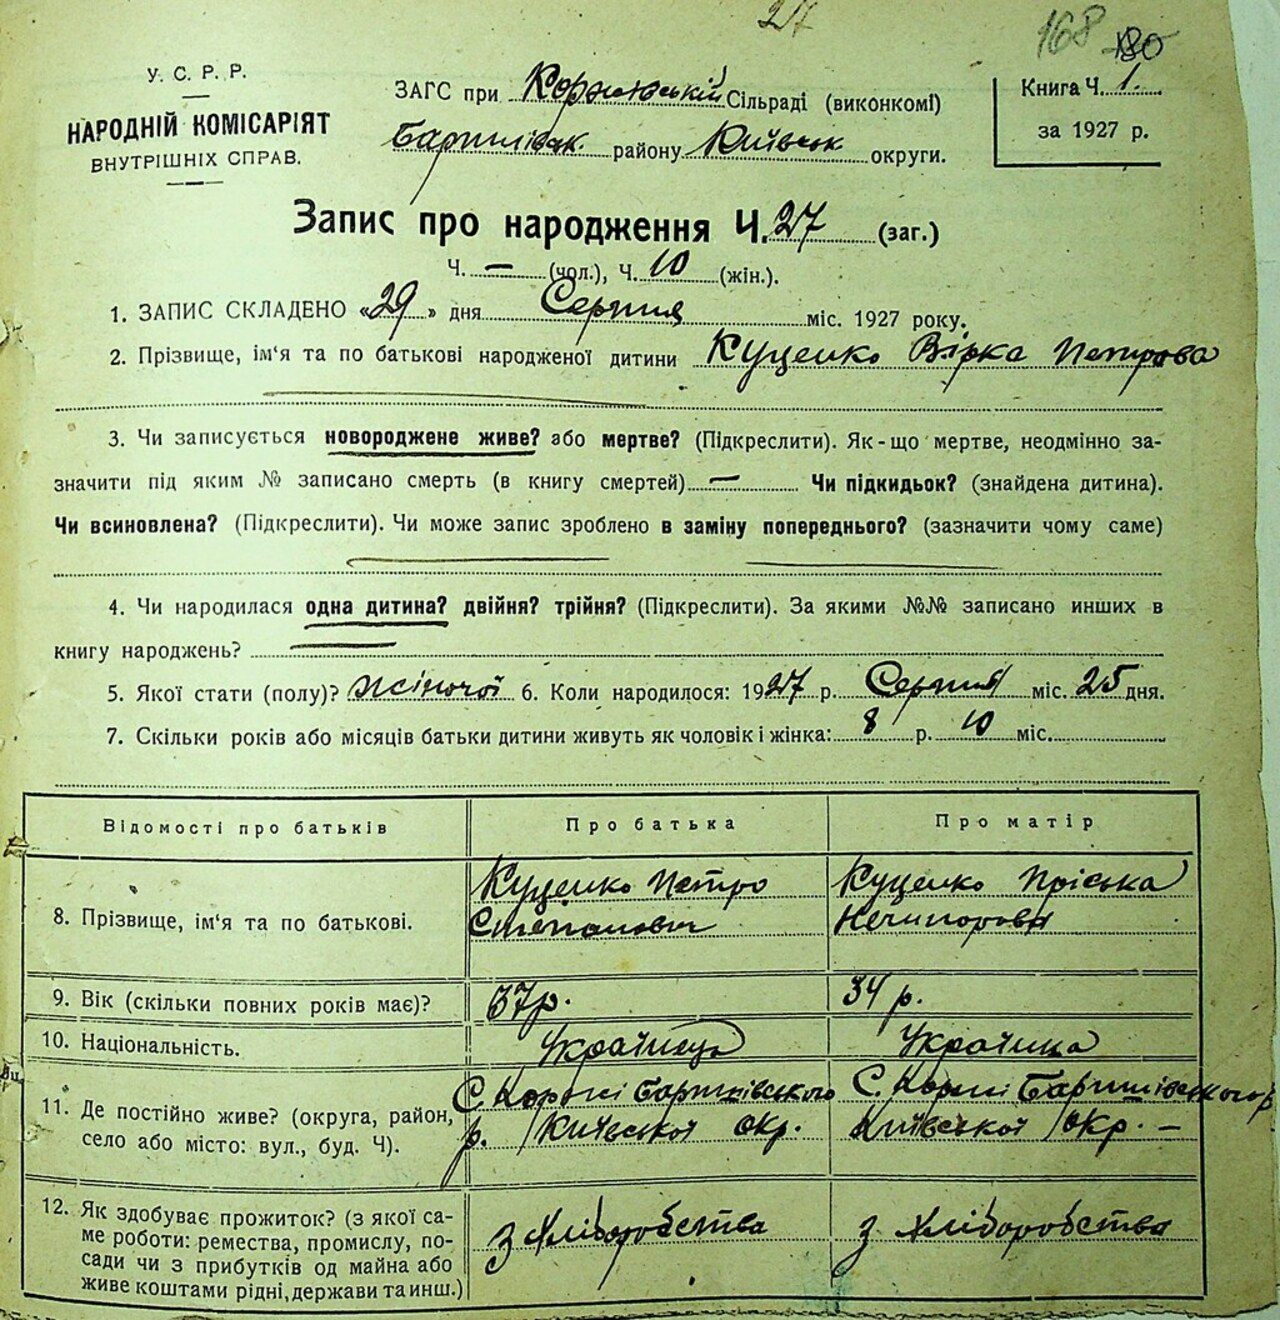 27
168 180
У. С. Р. Р.
НАРОДНІЙ КОМІСАРІЯТ
ВНУТРІШНІХ СПРАВ.
ЗАГС при Коржівській Сільраді (виконкомі)
Баришівськ. району Київськ округи.
Книга Ч. 1.
за 1927 р.
Запис про народження Ч. 27 (заг.)
Ч. — (чол.), Ч. 10 (жін.).
1. ЗАПИС СКЛАДЕНО «29» дня Серпня міс. 1927 року.
2. Прізвище, ім'я та по батькові народженої дитини Куценко Вірка Петрова
3. Чи записується новороджене живе? або мертве? (Підкреслити). Як-що мертве, неодмінно за-
значити під яким № записано смерть (в книгу смертей) — Чи підкидьок? (знайдена дитина).
Чи всиновлена? (Підкреслити). Чи може запис зроблено в заміну попереднього? (зазначити чому саме)
4. Чи народилася одна дитина? двійня? трійня? (Підкреслити). За якими №№ записано инших в
книгу народжень?
5. Якої стати (полу)? Жіночої 6. Коли народилось: 1927 р. Серпня міс. 25 дня.
7. Скільки років або місяців батьки дитини живуть як чоловік і жінка: 8 р. 10 міс.
Відомості про батьків Про батька Про матір
8. Прізвище, ім'я та по батькові.
Куценко Петро
Степанович
Куценко Пріська
Нечипорова
9. Вік (скільки повних років має)? 37 р. 34 р.
10. Національність. Українець Українка
11. Де постійно живе? (округа, район,
село або місто: вул., буд. Ч).
С. Коржі Баришівського
р. Київської окр.
С. Коржі Баришівського р
Київської окр. —
12. Як здобуває прожиток? (з якої са-
ме роботи: ремества, промислу, по-
сади чи з прибутків од майна або
живе коштами рідні, держави та инш.)
З Хліборобства
З Хліборобства